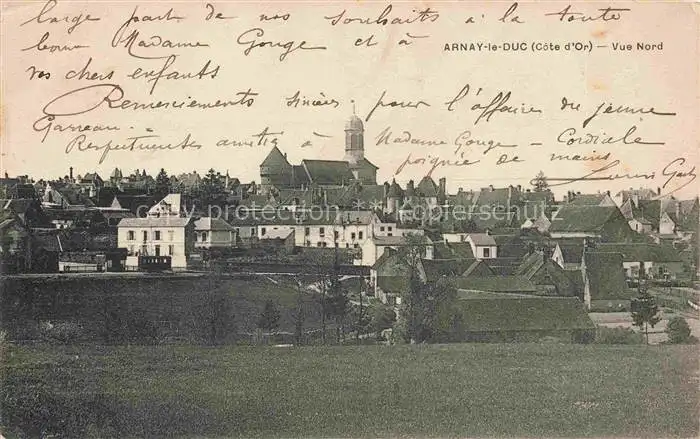 large part de nos souhaits à la toute
bonne Madame Gouge et à
ARNAY-le-DUC (Côte d'Or) — Vue Nord
vos chers enfants
Remerciements sincères pour l'affaire du jeune
Garreau. =
Respectueuses amitiés à Madame Gouge — Cordiale
poignée de mains
copyright protection © copyrightschutz